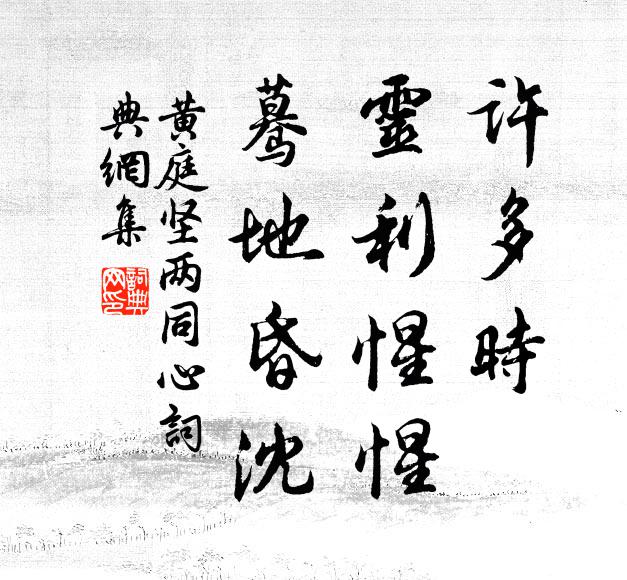 許多時
靈利惺惺
驀地昏沈
黄庭坚两同心詞
典網集
詞典
网印